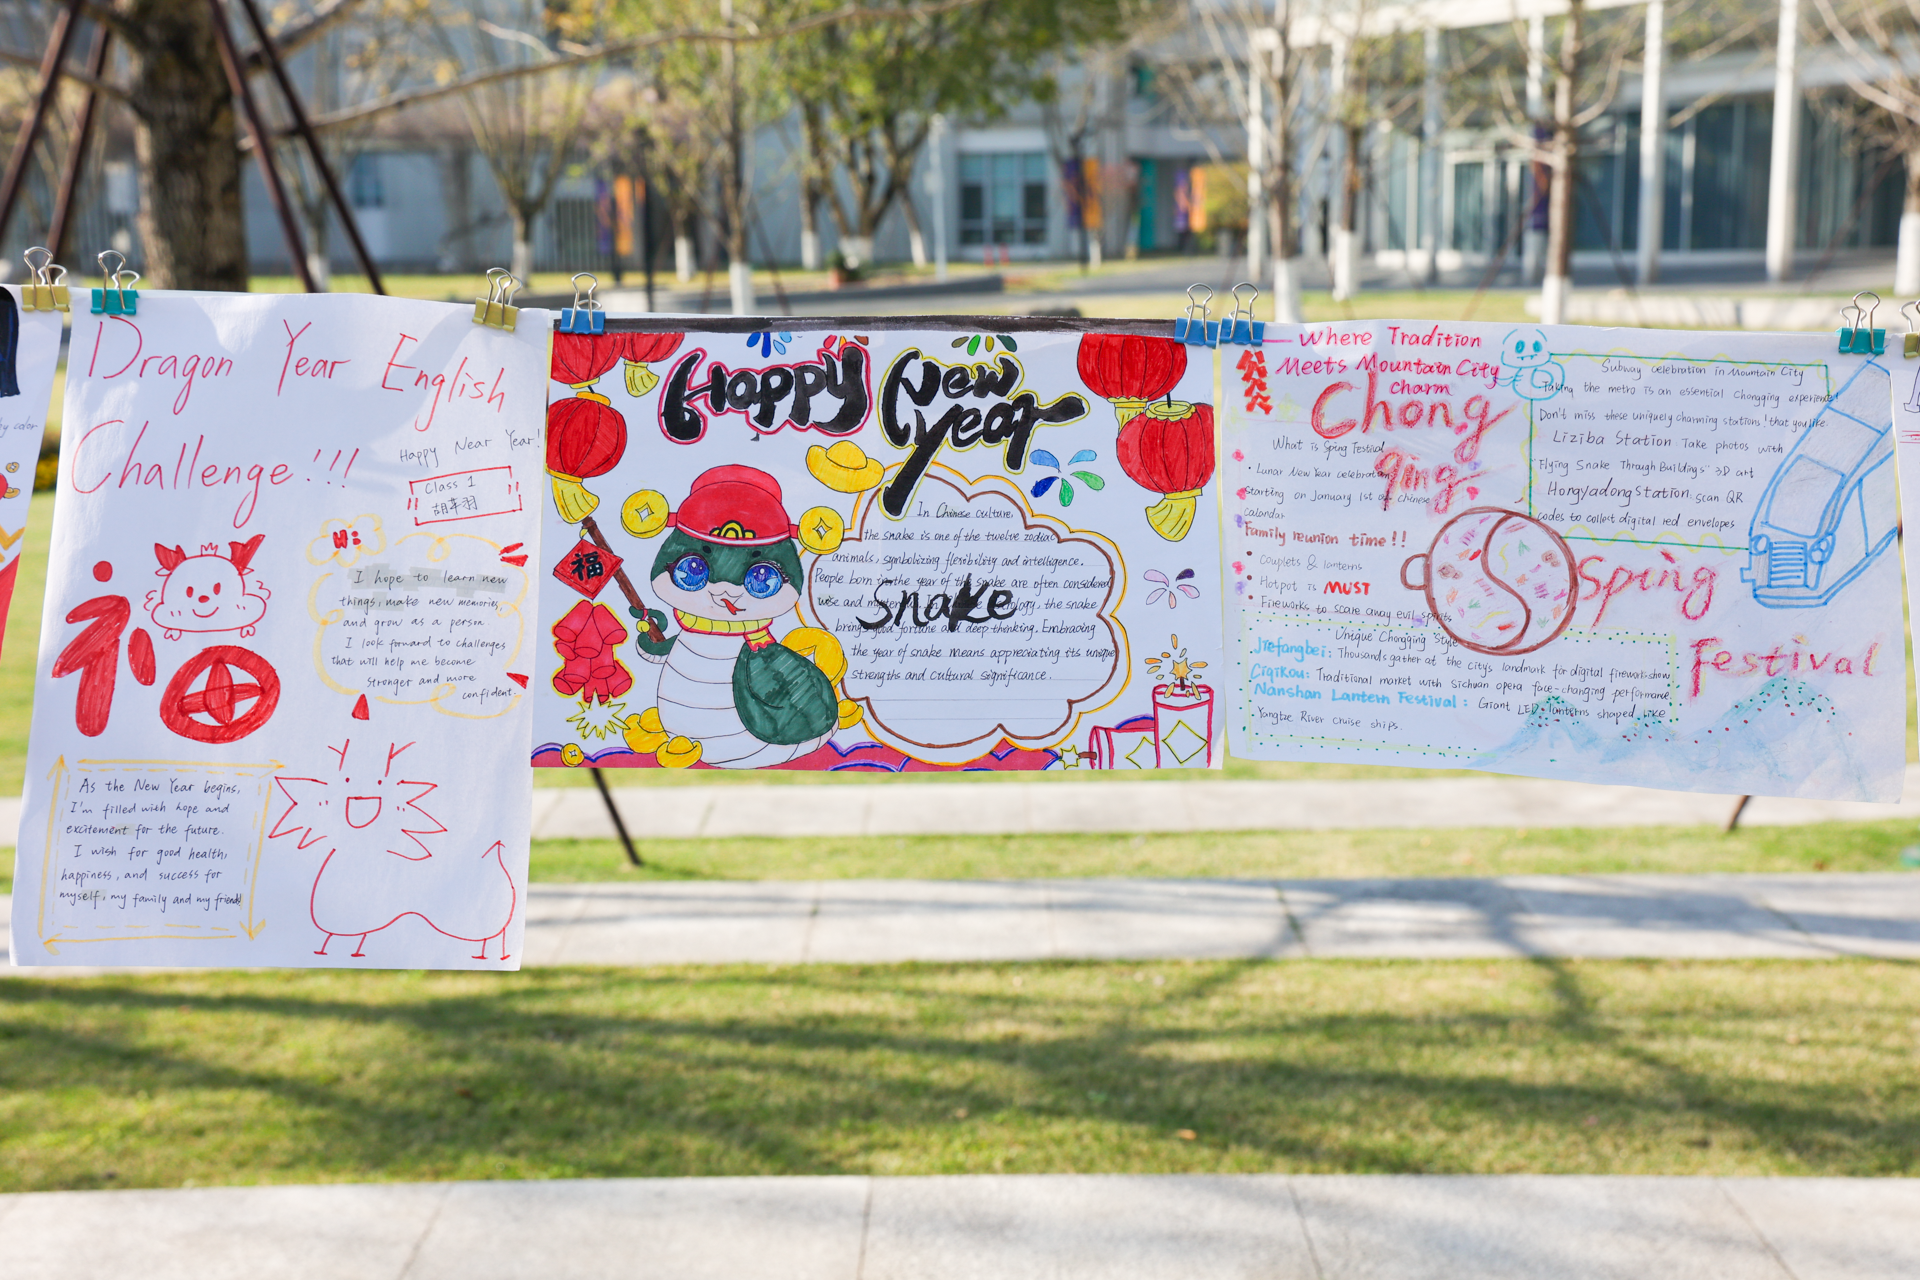 Dragon Year English
Challenge!!!
Happy Near Year!
Class 1
Hi
I hope to learn new
things, make new memories,
and grow as a person.
I look forward to challenges
that will help me become
stronger and more
confident.
福
As the New Year begins,
I'm filled with hope and
excitement for the future.
I wish for good health,
happiness, and success for
myself, my family and my friend!
Happy New
year
福
In Chinese culture,
the snake is one of the twelve zodiac
animals, symbolizing flexibility and intelligence.
People born in the year of the snake are often considered
wise and mysterious. In the snake
brings good fortune and deep thinking. Embracing
the year of snake means appreciating its unique
strengths and cultural significance.
Snake
Where Tradition
Meets Mountain City
charm
Chong
qing
Spring
Festival
What is Spring Festival
Lunar New Year celebration
Starting on January 1st of Chinese
Calandar
Family reunion time!!
Couplets & lanterns
Hotpot is MUST
Fireworks to scare away evil spirits
Unique Chongqing Style
Jiefangbei: Thousands gather at the city's landmark for digital firework show
Ciqikou: Traditional market with Sichuan opera face-changing performance.
Nanshan Lantern Festival: Giant LED lanterns shaped like
Yangtze River cruise ships.
Subway celebration in Mountain City
Taking the metro is an essential Chongqing experience!
Don't miss these uniquely charming stations! that you like
Liziba Station: Take photos with
"Flying Snake Through Buildings" 3D art
Hongyadong Station: scan QR
codes to collect digital red envelopes